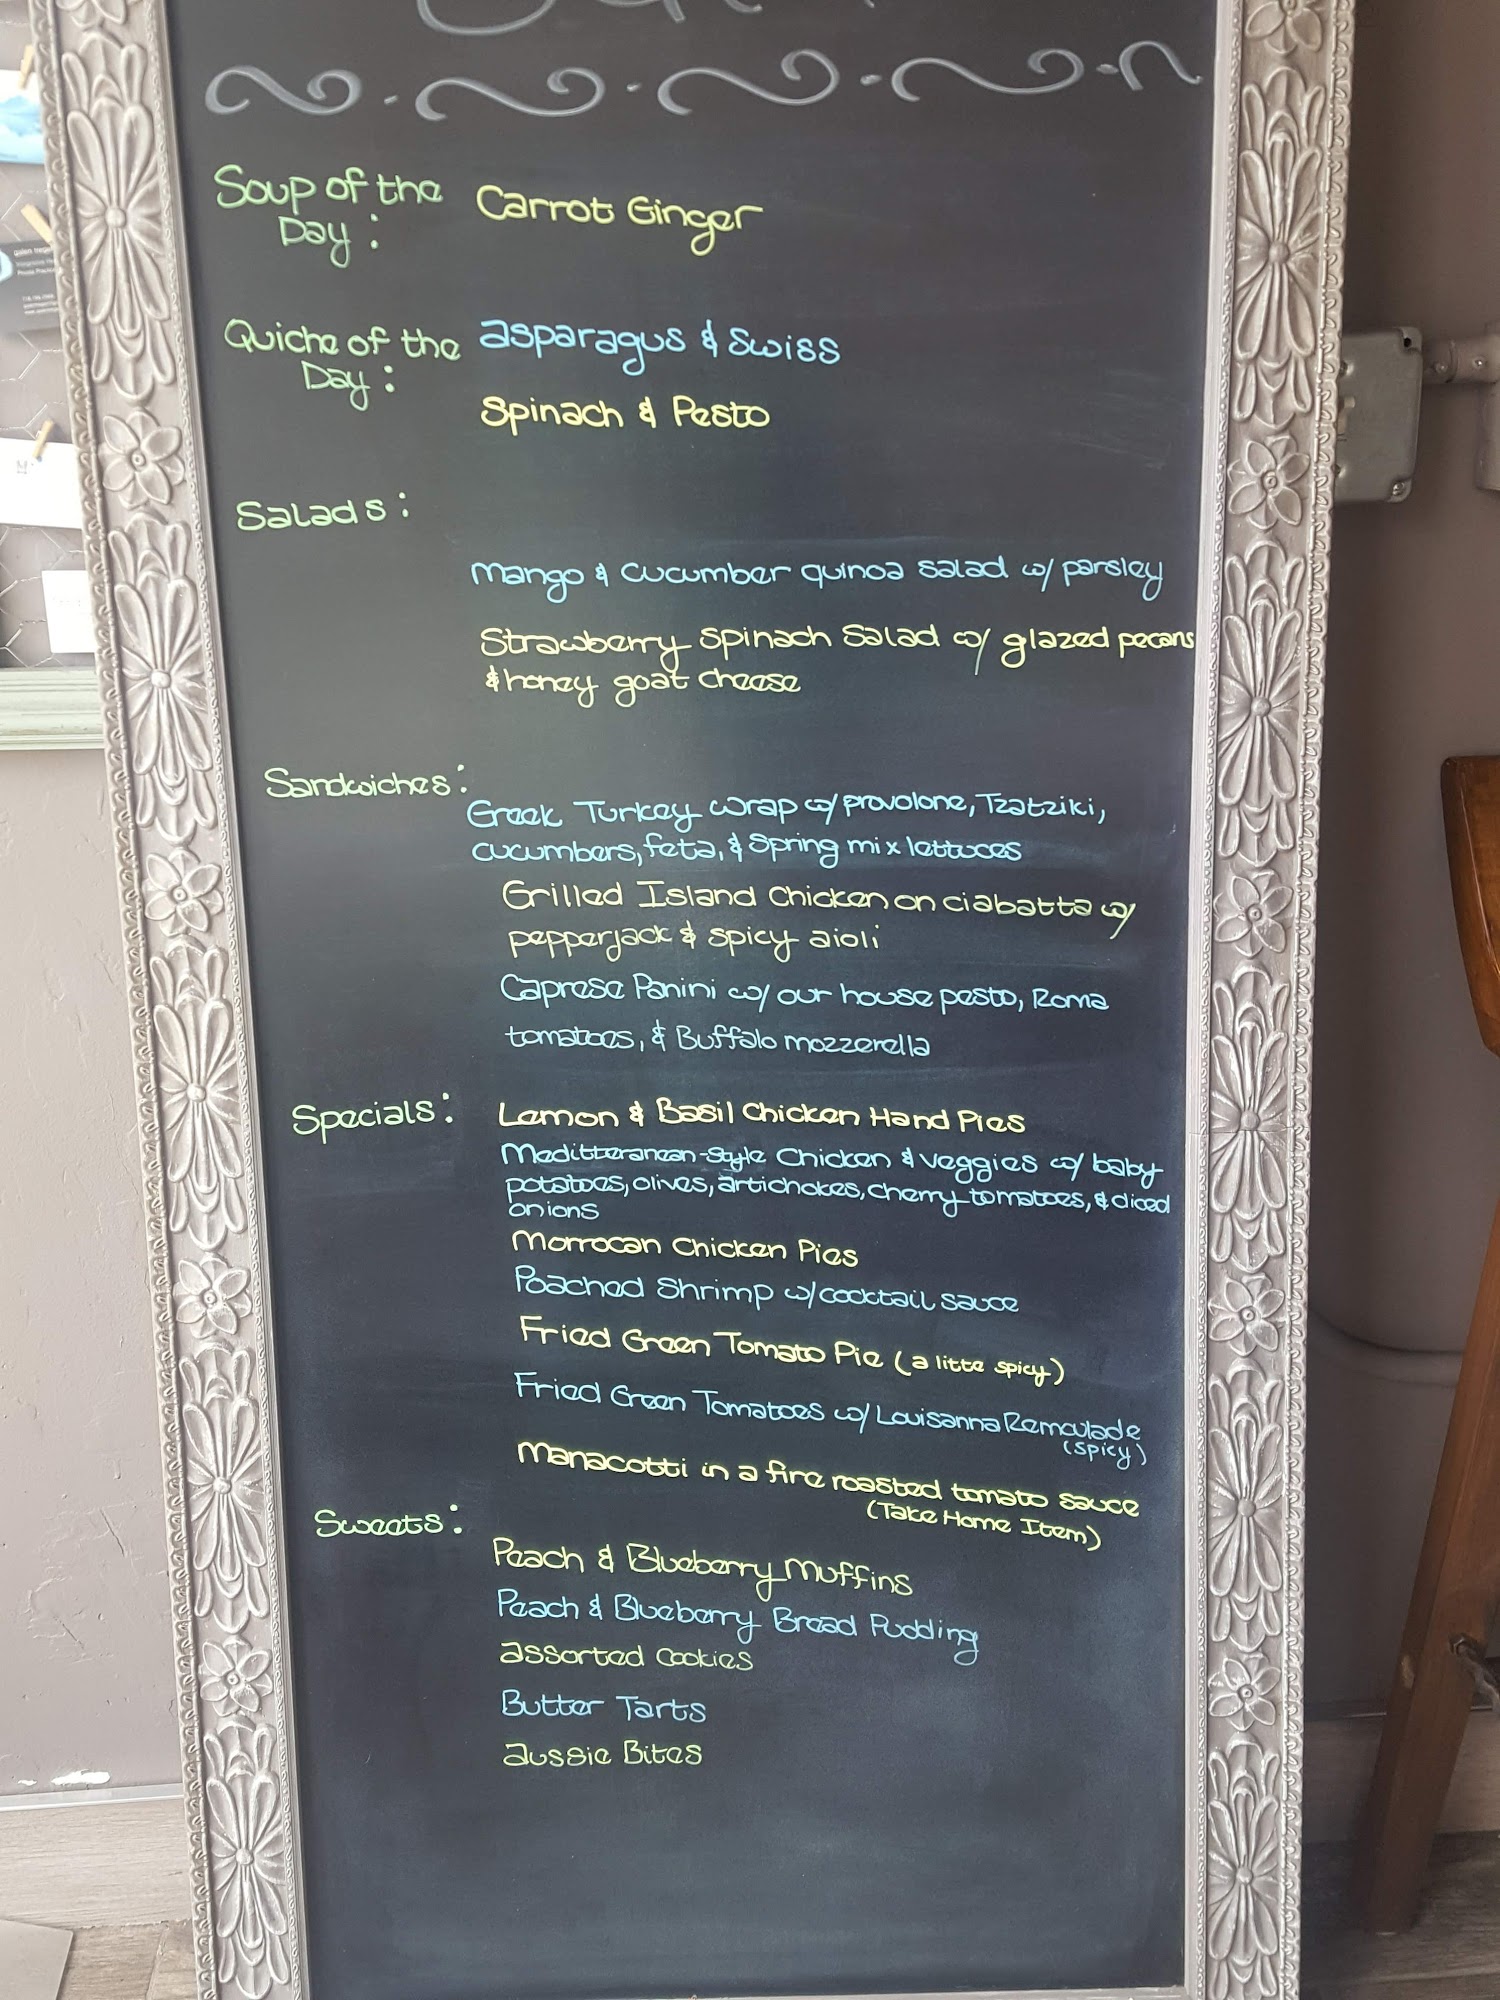 Soup of the
Day:
Carrot Ginger
Quiche of the
Day:
asparagus & Swiss
Spinach & Pesto
Salads:
Mango & cucumber quinoa salad w/ parsley
Strawberry Spinach Salad w/ glazed pecans
& honey goat cheese
Sandwiches:
Greek Turkey wrap w/ provolone, Tzatziki,
cucumbers, feta, & Spring mix lettuces
Grilled Island Chicken on ciabatta w/
pepperjack & spicy aioli
Caprese Panini w/ our house pesto, Roma
tomatoes, & Buffalo mozzerella
Specials:
Lemon & Basil Chicken Hand Pies
Meditteranean-Style Chicken & veggies w/ baby
potatoes, olives, artichokes, cherry tomatoes, & diced
onions
Morrocan Chicken Pies
Poached Shrimp w/ cocktail sauce
Fried Green Tomato Pie (a litte spicy)
Fried Green Tomatoes w/ Louisanna Remoulade
(spicy)
Manacotti in a fire roasted tomato sauce
(Take Home Item)
Sweets:
Peach & Blueberry Muffins
Peach & Blueberry Bread Pudding
assorted Cookies
Butter Tarts
aussie Bites